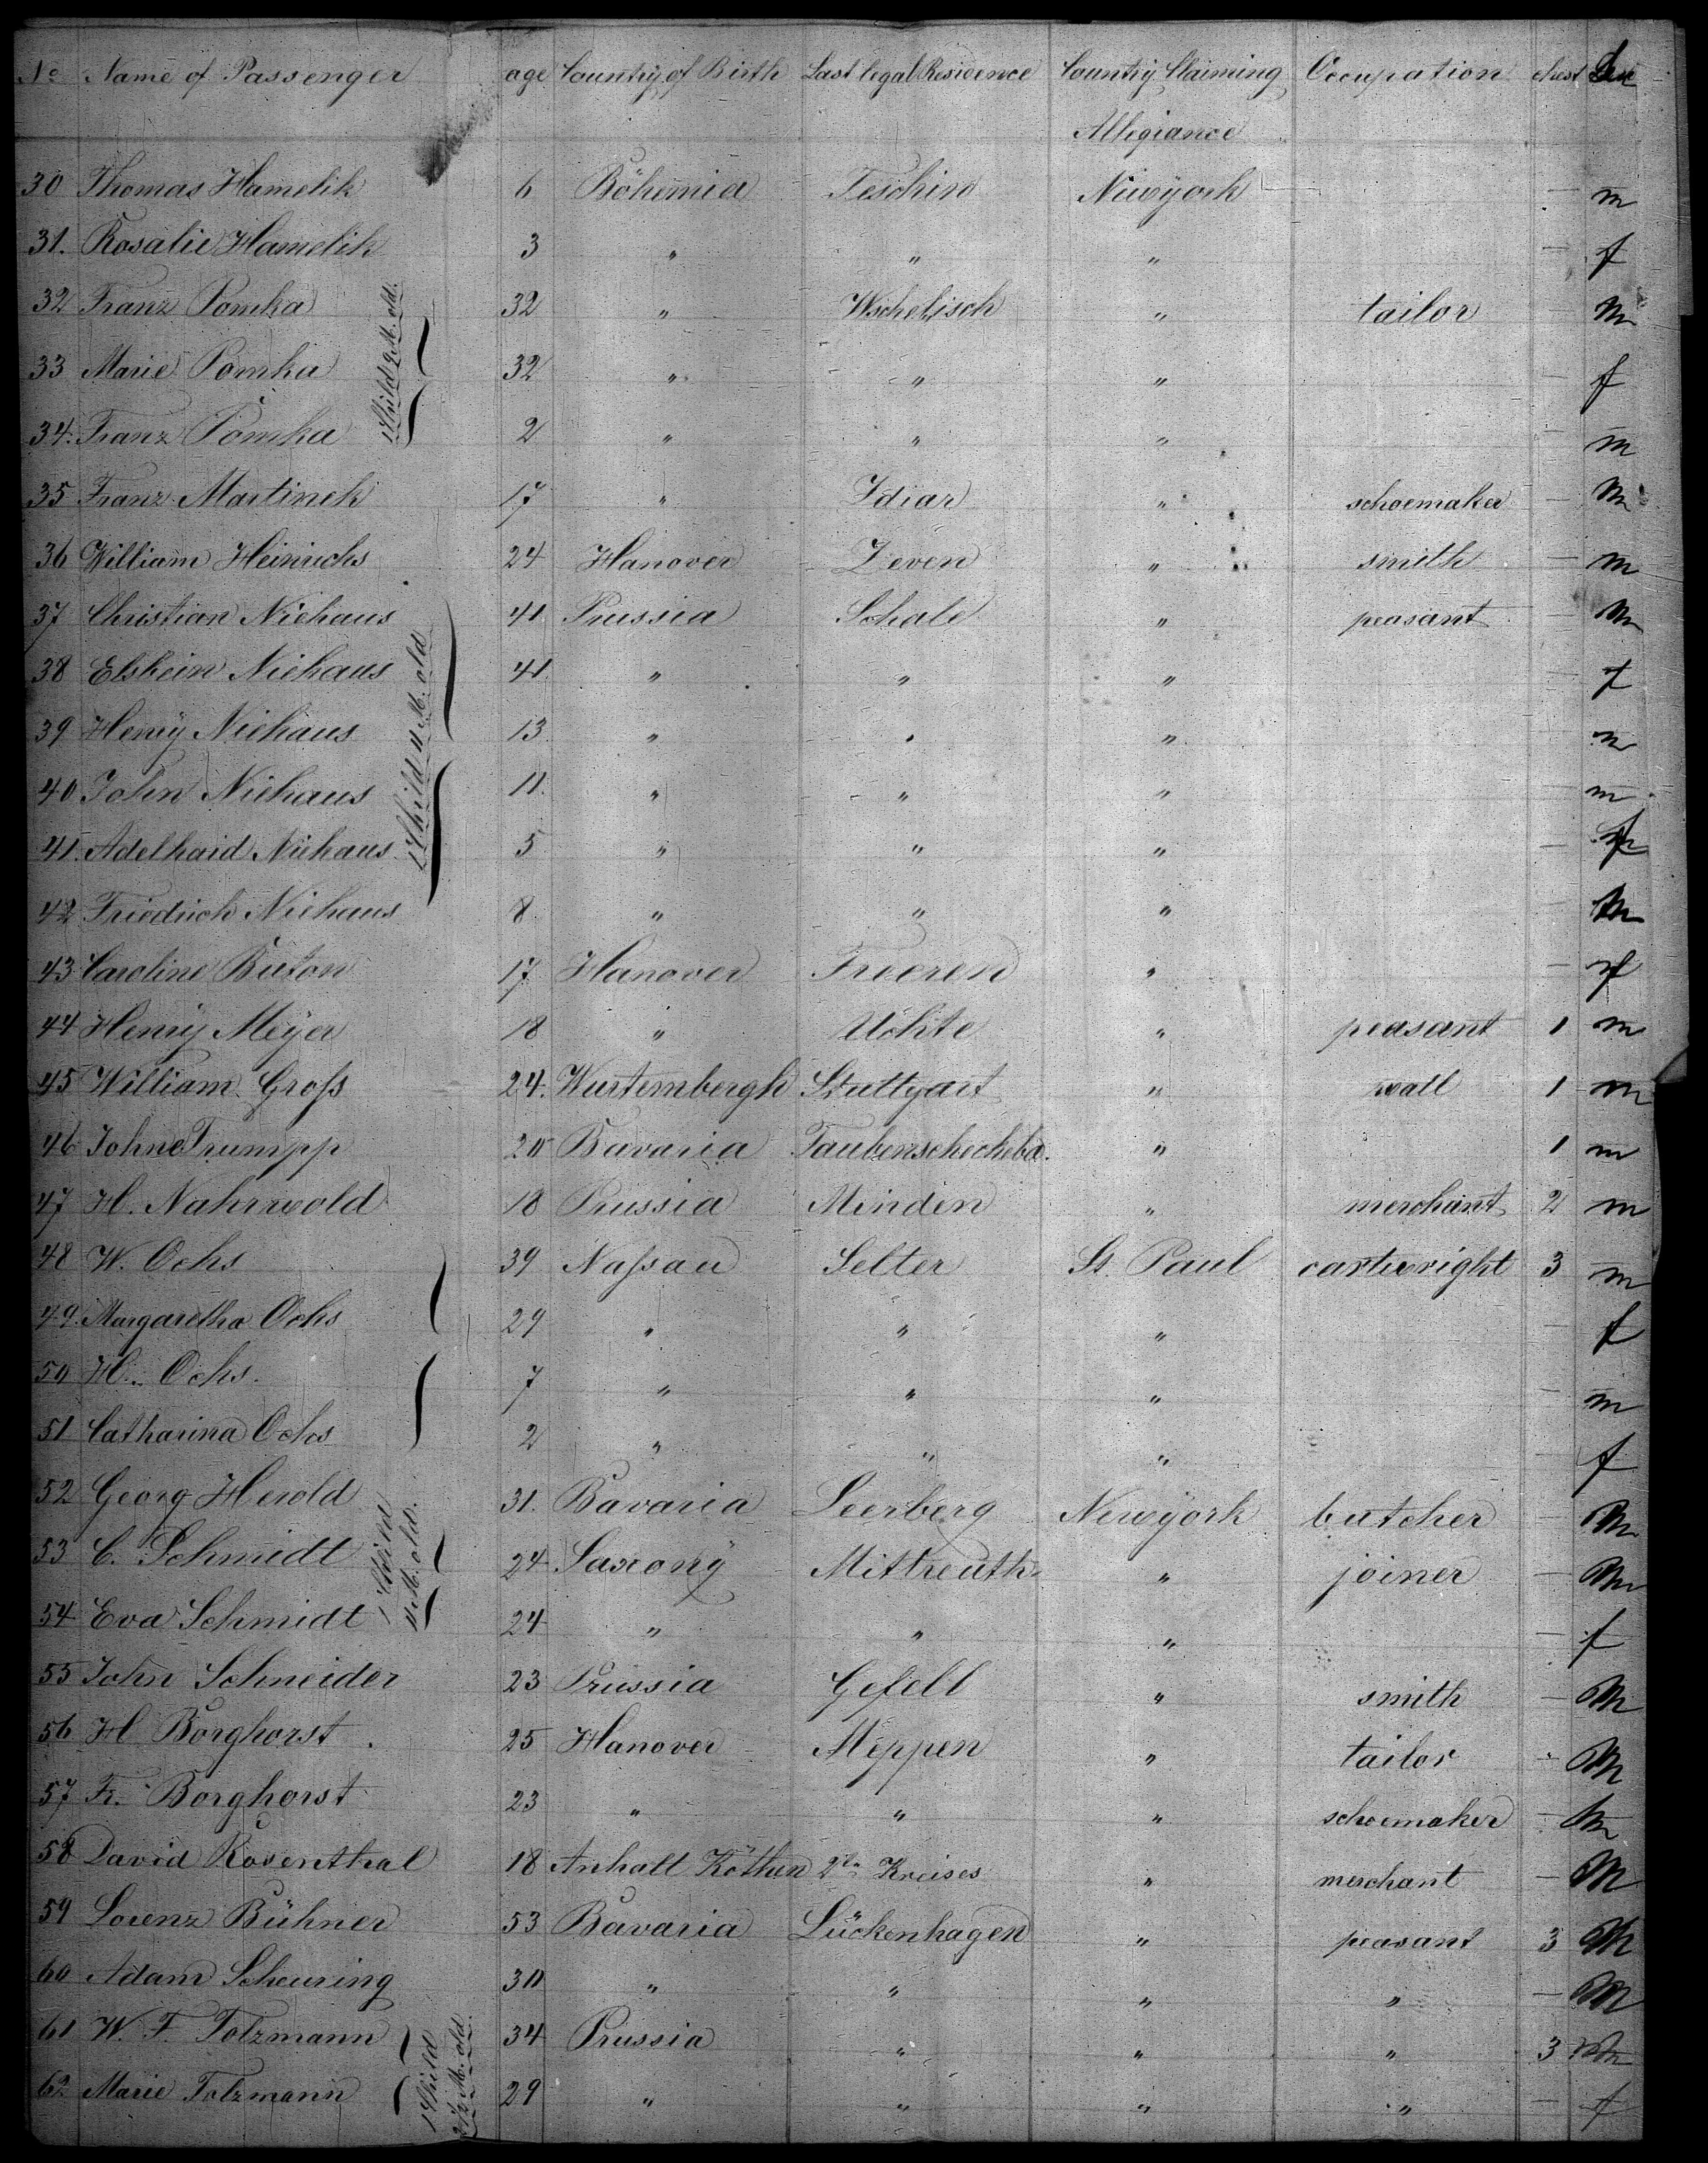 No Name of Passenger age Country of Birth Last legal Residence Country Claiming Allegiance Occupation chest Sex
30 Thomas Hamelik 6 Böhemia Teschin Newÿork m
31. Rosalie Hamelik 3 " " " f
32 Franz Pomka 32 " Wschelisch " tailor m
33 Marie Pomka 32 " " " f
1 Child 9 M. old.
34. Franz Pomka 2 " " " m
35 Franz Martinek 17 " Zdiar " schoemaker m
36 William Heinrichs 24 Hanover Zeven " smith m
37 Christian Niehaus 41 Prussia Schale " peasant m
38 Elsbein Niehaus 41. " " " f
39 Henrÿ Niehaus 13 " " " m
1 Child 11 M. old
40 John Niehaus 11. " " " m
41. Adelhaid Niehaus 5 " " " f
42 Friedrich Niehaus 8 " " " m
43 Caroline Buton 17 Hanover Freeren " f
44 Henrÿ Meÿer 18 " Uchte " peasant 1 m
45 William Groſs 24. Wurtembergh Stuttgart " 1 m
46 John Trumpp 20 Bavaria " 1 m
47 H. Nahrwold 18 Prussia Minden " merchant 2 m
48 W. Ochs 39 Naſsau Selter St. Paul cartwright 3 m
49. Margaretha Ochs 29 " " " f
50 H. Ochs. 7 " " " m
51 Catharina Ochs 2 " " " f
52 Georg Herold 31. Bavaria Leerberg Newÿork butcher m
53 C. Schmidt 24 Saxonÿ Mittreuth " joiner m
1 Child 11 M. old.
54 Eva Schmidt 24 " " " f
55 John Schneider 23 Prussia Gefell " smith m
56 H Borghorst 25 Hanover Meppen " tailor m
57 Fr. Borghorst 23 " " " schoemaker m
58 David Rosenthal 18 Anhalt Köthen 2ten Kreises " merchant m
59 Lorenz Bühner 53 Bavaria Lückenhagen " peasant 3 m
60 Adam Scheuring 30 " " " " m
61 W. F. Tolzmann 34 Prussia " " " 3 m
1 Child 2 1/2 M. old.
62 Marie Tolzmann 29 " " " " f